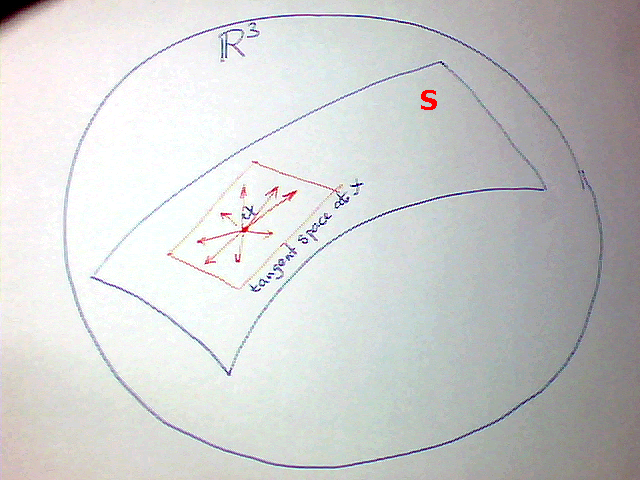 ℝ³
S
x
tangent space at x